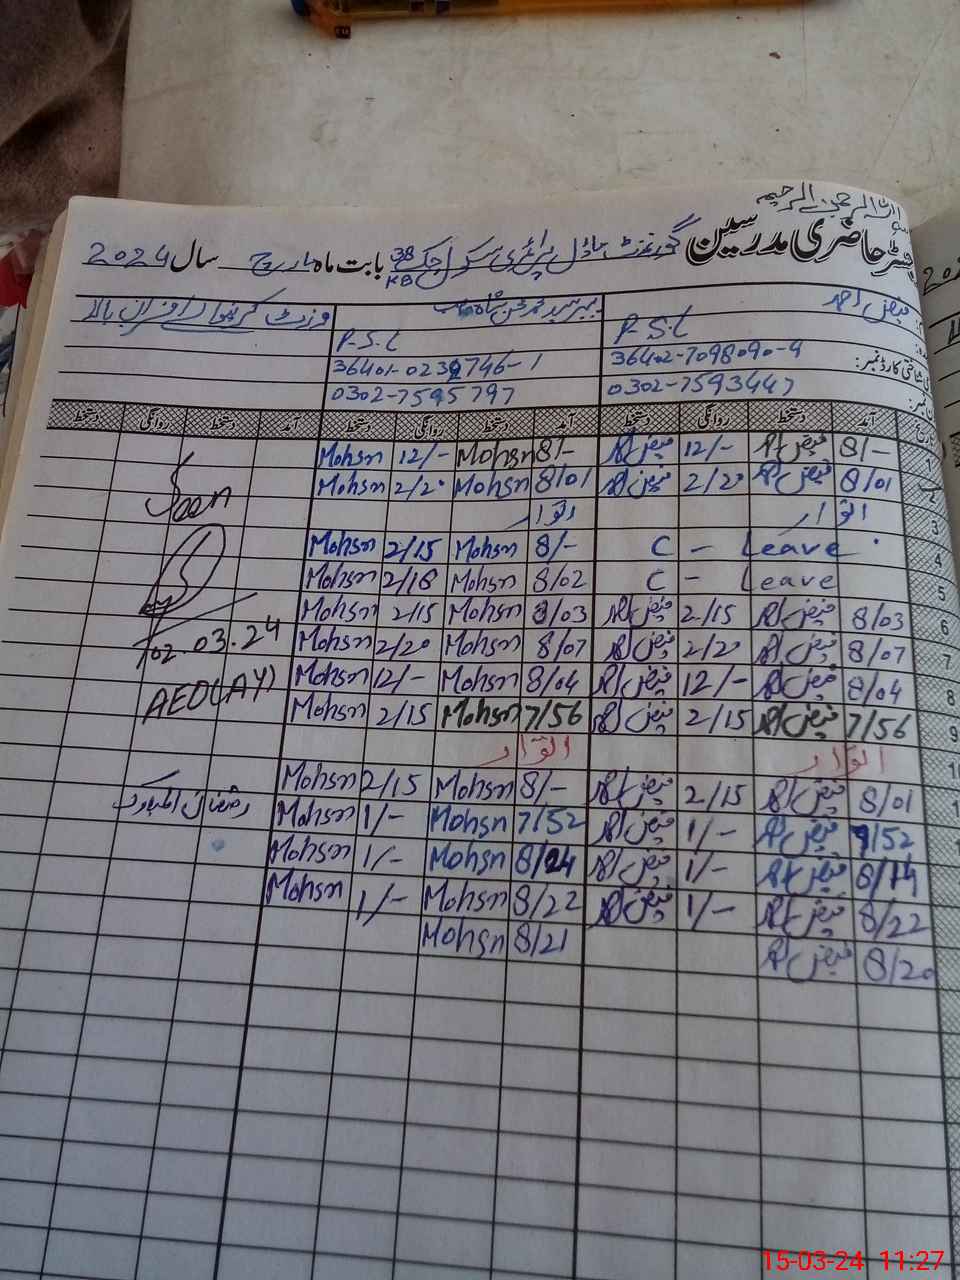 رجسٹر حاضری مدرسین گورنمنٹ ماڈل پرائمری سکول چک 38 KB بابت ماہ مارچ سال 2024
فیض احمد
P.S.T P.S.T
36402-7098090-9 36401-0239746-1
0302-7593447 0302-7595797
آمد دستخط روانگی دستخط آمد دستخط روانگی دستخط آمد دستخط روانگی دستخط
1 8/- فیض احمد 12/- فیض احمد 8/- Mohsn 12/- Mohsn
2 8/01 فیض احمد 2/20 فیض احمد 8/01 Mohsn 2/20 Mohsn
Seen
3 اتوار اتوار
4 Leave - C 8/- Mohsn 2/15 Mohsn
5 Leave - C 8/02 Mohsn 2/16 Mohsn
6 8/03 فیض احمد 2/15 فیض احمد 8/03 Mohsn 2/15 Mohsn
02.03.24
7 8/07 فیض احمد 2/20 فیض احمد 8/07 Mohsn 2/20 Mohsn
8 8/04 فیض احمد 12/- فیض احمد 8/04 Mohsn 12/- Mohsn
AEO(AY)
9 7/56 فیض احمد 2/15 فیض احمد 7/56 Mohsn 2/15 Mohsn
10 اتوار اتوار
8/01 فیض احمد 2/15 فیض احمد 8/- Mohsn 2/15 Mohsn
رمضان المبارک
7/52 فیض احمد 1/- فیض احمد 7/52 Mohsn 1/- Mohsn
فیض احمد 1/- فیض احمد 8/24 Mohsn 1/- Mohsn
8/22 فیض احمد 1/- فیض احمد 8/22 Mohsn 1/- Mohsn
8/20 فیض احمد 8/21 Mohsn
15-03-24 11:27